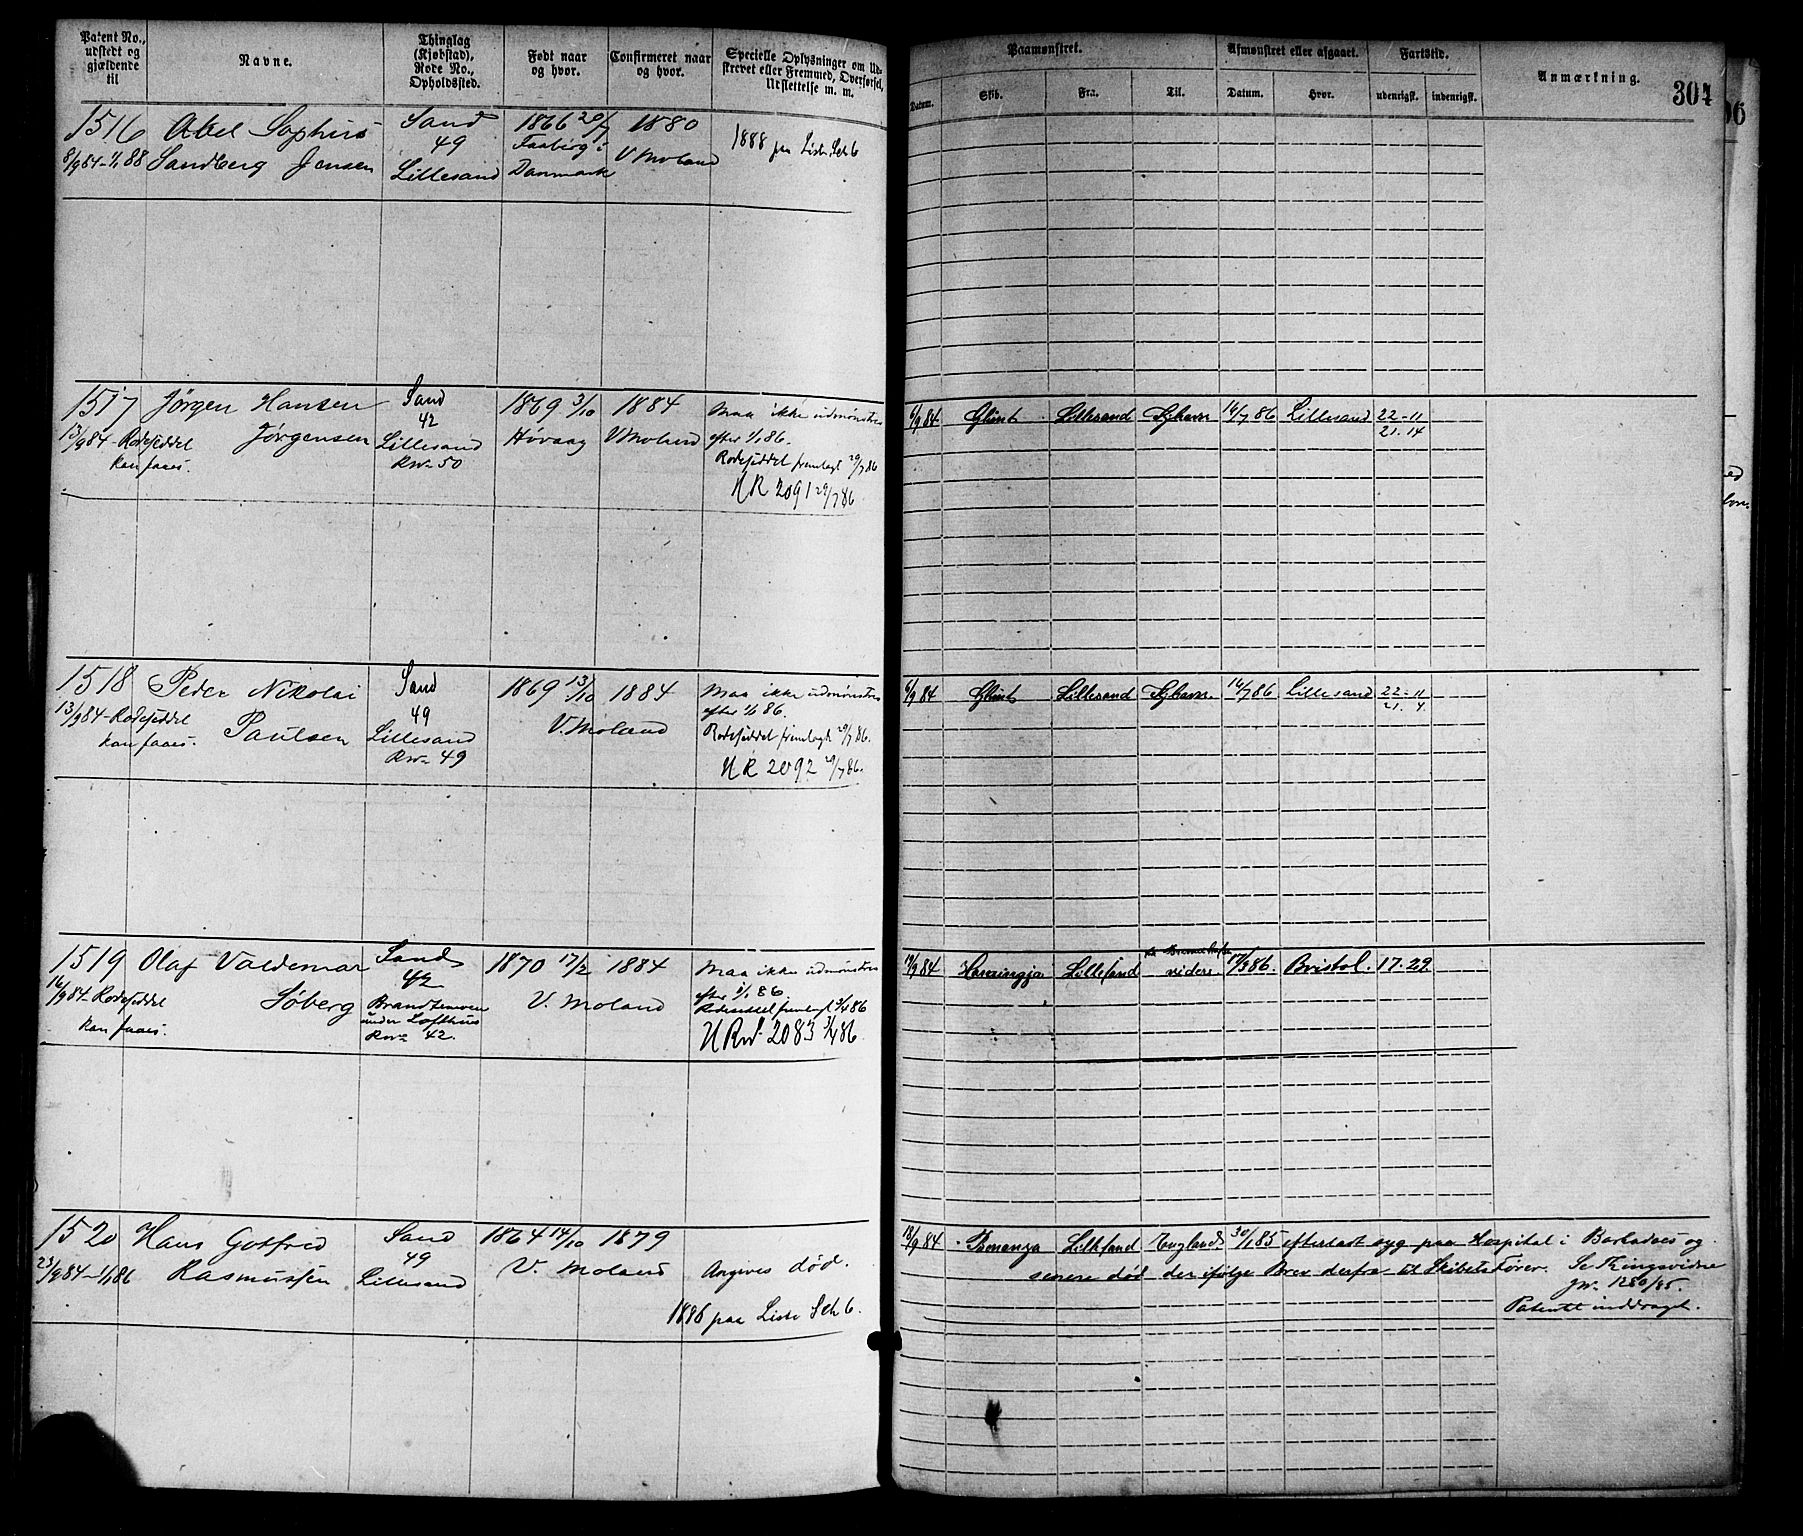 Patent No., udstedt og gjældende til
Navne.
Thinglag (Kjøbstad), Rode No., Opholdssted.
Født naar og hvor.
Confirmeret naar og hvor.
Specielle Oplysninger om Udskrevet eller Fremmed, Overførsel, Udslettelse m. m.
Paamønstret.
Datum.
Skib.
Fra.
Til.
Afmønstret eller afgaaet.
Datum.
Hvor.
Fartstid.
udenrigsk.
indenrigsk.
Anmærkning.
304
1516 Abel Sophus Sand 1866 20/7 1880
8/9 84-1/1 88 Sandberg Jensen 49 Faaborg i V Moland 1888 paa Liste Sch 6
Lillesand Danmark
1517 Jørgen Hansen Sand 1869 3/10 1884 Maa ikke udmønstres
13/9 84-Rodeseddel Jørgensen 42 Høvaag V Moland efter 1/1 86.
kan faaes. Lillesand Rodeseddel fremlagt 29/7 86
Rno 50 UR 2091 29/7 86
6/9 84 Glimt Lillesand 16/7 86 Lillesand 22-11
21.14
1518 Peder Nikolai Sand 1869 13/10 1884 Maa ikke udmønstres
13/9 84-Rodeseddel Paulsen 49 V. Moland efter 1/1 86.
kan faaes. Lillesand Rodeseddel fremlagt 29/7 86.
Rno 49 UR 2092 29/7 86.
6/9 84 Glimt Lillesand 16/7 86 Lillesand 22-11
21.4.
1519 Olaf Valdemar Sand 1870 17/2 1884 Maa ikke udmønstres
16/9 84-Rodeseddel Søberg 42 V. Moland efter 1/1 86
kan faaes. under Lofthus Rodeseddel fremlagt 3/4 86
Rno 42. 2083 3/4 86
84 Lillesand videre 17/3 86. Bristol. 17.29
1520 Hans Gotfred Sand 1864 14/10 1879
23/9 84-1/1 86 Rasmussen 49 V. Moland Angives død.
Lillesand 1886 paa Liste Sch 6.
18/9 84 Bonanza Lillesand England 30/1 85 efterladt syg paa Hospital i Barbadoes og
senere død der ifølge Brev derfra til Skibets Fører. Se Thingsvidne
Jno 1280/85.
Patentet inddraget.